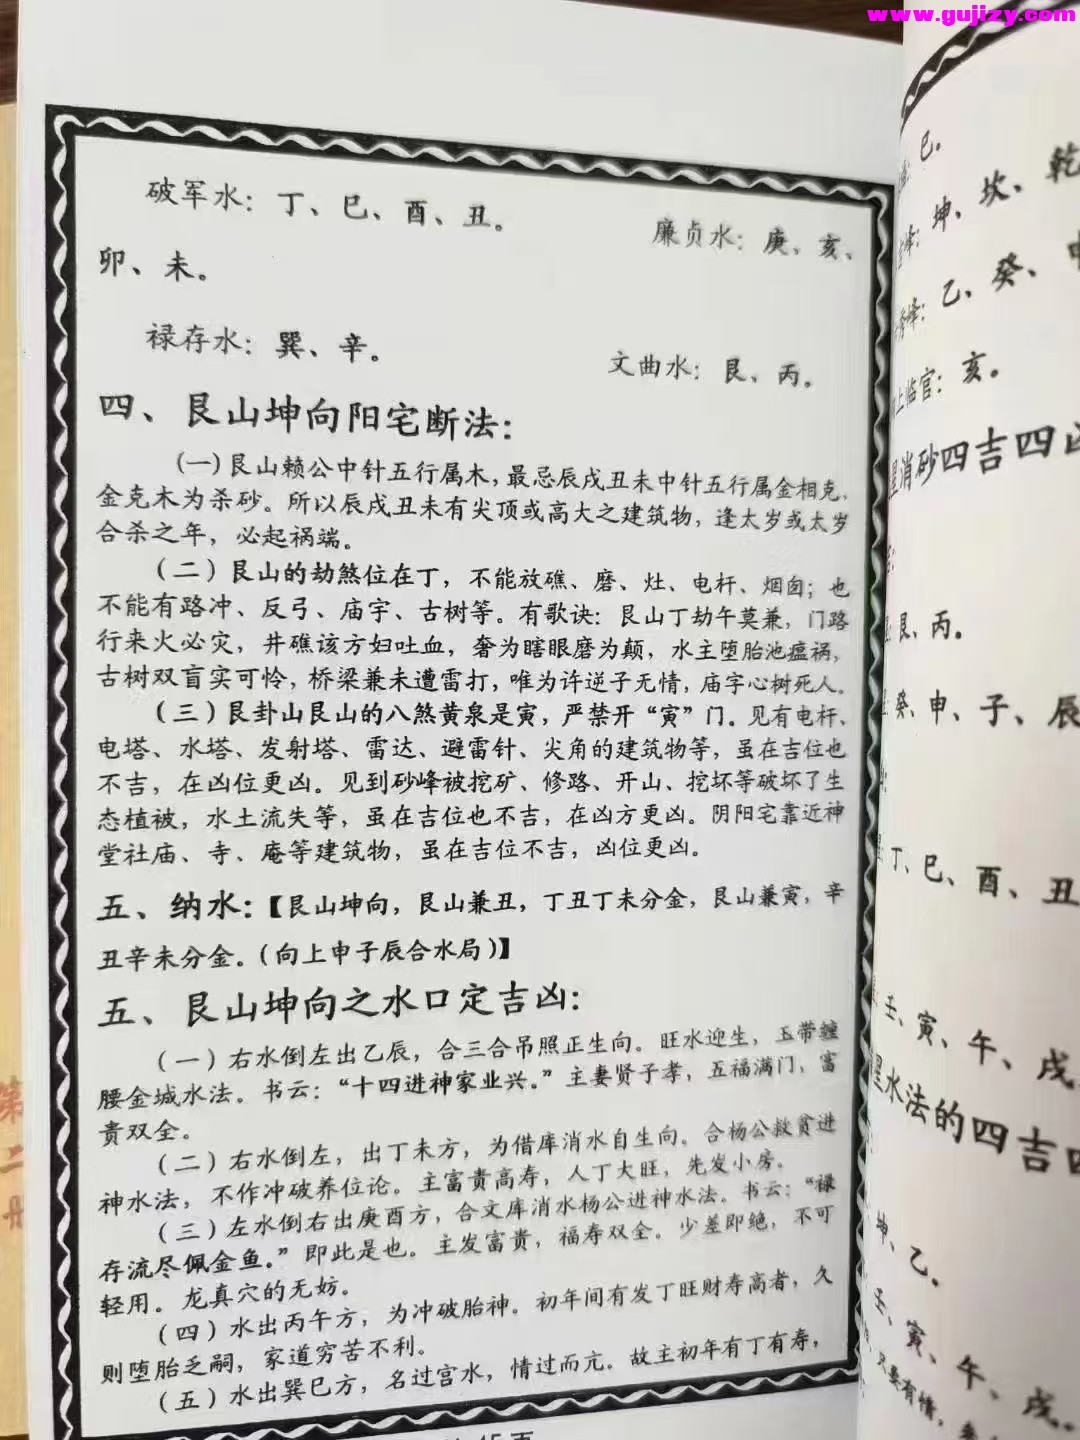 www.gujizy.com
破军水：丁、巳、酉、丑。 廉贞水：庚、亥、
卯、未。
禄存水：巽、辛。 文曲水：艮、丙。
四、艮山坤向阳宅断法：
（一）艮山赖公中针五行属木，最忌辰戌丑未中针五行属金相克，
金克木为杀砂。所以辰戌丑未有尖顶或高大之建筑物，逢太岁或太岁
合杀之年，必起祸端。
（二）艮山的劫煞位在丁，不能放礁、磨、灶、电杆、烟囱；也
不能有路冲、反弓、庙宇、古树等。有歌诀：艮山丁劫午莫兼，门路
行来火必灾，井礁该方妇吐血，奢为瞎眼磨为颠，水主堕胎池瘟祸，
古树双盲实可怜，桥梁兼未遭雷打，唯为许逆子无情，庙字心树死人。
（三）艮卦山艮山的八煞黄泉是寅，严禁开“寅”门。见有电杆、
电塔、水塔、发射塔、雷达、避雷针、尖角的建筑物等，虽在吉位也
不吉，在凶位更凶。见到砂峰被挖矿、修路、开山、挖坏等破坏了生
态植被，水土流失等，虽在吉位也不吉，在凶方更凶。阴阳宅靠近神
堂社庙、寺、庵等建筑物，虽在吉位不吉，凶位更凶。
五、纳水：【艮山坤向，艮山兼丑，丁丑丁未分金，艮山兼寅，辛
丑辛未分金。（向上申子辰合水局）】
五、艮山坤向之水口定吉凶：
（一）右水倒左出乙辰，合三合吊照正生向。旺水迎生，玉带缠
腰金城水法。书云：“十四进神家业兴。”主妻贤子孝，五福满门，富
贵双全。
（二）右水倒左，出丁未方，为借库消水自生向。合杨公救贫进
神水法，不作冲破养位论。主富贵高寿，人丁大旺，先发小房。
（三）左水倒右出庚酉方，合文库消水杨公进神水法。书云：“禄
存流尽佩金鱼。”即此是也。主发富贵，福寿双全。少差即绝，不可
轻用。龙真穴的无妨。
（四）水出丙午方，为冲破胎神。初年间有发丁旺财寿高者，久
则堕胎乏嗣，家道穷苦不利。
（五）水出巽巳方，名过宫水，情过而亢。故主初年有丁有寿，
第二册
巳。
坤、坎、乾
峰：乙、癸、
上临官：亥。
消砂四吉四凶
艮、丙。
癸、申、子、辰
丁、巳、酉、丑
壬、寅、午、戌
星水法的四吉四
坤、乙。
壬、寅、午、戌。
只要有情，